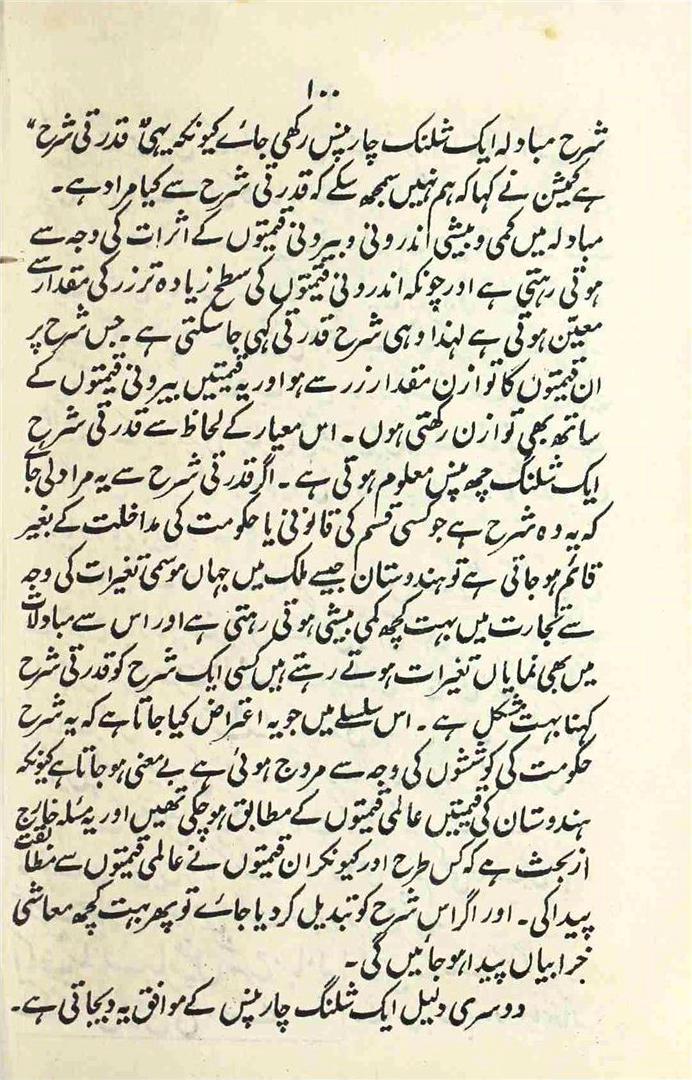 ۱۰۰
شرح مبادلہ ایک شلنگ چار پنس رکھی جائے کیونکہ یہی "قدرتی شرح"
ہے کمیشن نے کہا کہ ہم نہیں سمجھ سکے کہ قدرتی شرح سے کیا مراد ہے۔
مبادلہ میں کمی و بیشی اندرونی و بیرونی قیمتوں کے اثرات کی وجہ سے
ہوتی رہتی ہے اور چونکہ اندرونی قیمتوں کی سطح زیادہ تر زر کی مقدار سے
معیّن ہوتی ہے لہذا وہی شرح قدرتی کہی جا سکتی ہے۔ جس شرح پر
ان قیمتوں کا توازن مقدار زر سے ہو اور یہ قیمتیں بیرونی قیمتوں کے
ساتھ بھی توازن رکھتی ہوں۔ اس معیار کے لحاظ سے قدرتی شرح
ایک شلنگ چھ پنس معلوم ہوتی ہے۔ اگر قدرتی شرح سے یہ مراد لی جائے
کہ یہ وہ شرح ہے جو کسی قسم کی قانونی یا حکومت کی مداخلت کے بغیر
قائم ہو جاتی ہے تو ہندوستان جیسے ملک میں جہاں موسمی تغیرات کی وجہ
سے تجارت میں بہت کچھ کمی بیشی ہوتی رہتی ہے اور اس سے مبادلات
میں بھی نمایاں تغیرات ہوتے رہتے ہیں کسی ایک شرح کو قدرتی شرح
کہنا بہت مشکل ہے۔ اس سلسلے میں جو یہ اعتراض کیا جاتا ہے کہ یہ شرح
حکومت کی کوششوں کی وجہ سے مروج ہوئی ہے بے معنی ہو جاتا ہے کیونکہ
ہندوستان کی قیمتیں عالمی قیمتوں کے مطابق ہو چکی تھیں اور یہ مسئلہ خارج
از بحث ہے کہ کس طرح اور کیونکر ان قیمتوں نے عالمی قیمتوں سے مطابقت
پیدا کی۔ اور اگر اس شرح کو تبدیل کر دیا جائے تو پھر بہت کچھ معاشی
خرابیاں پیدا ہو جائیں گی۔
دوسری دلیل ایک شلنگ چار پنس کے موافق یہ دیجاتی ہے۔